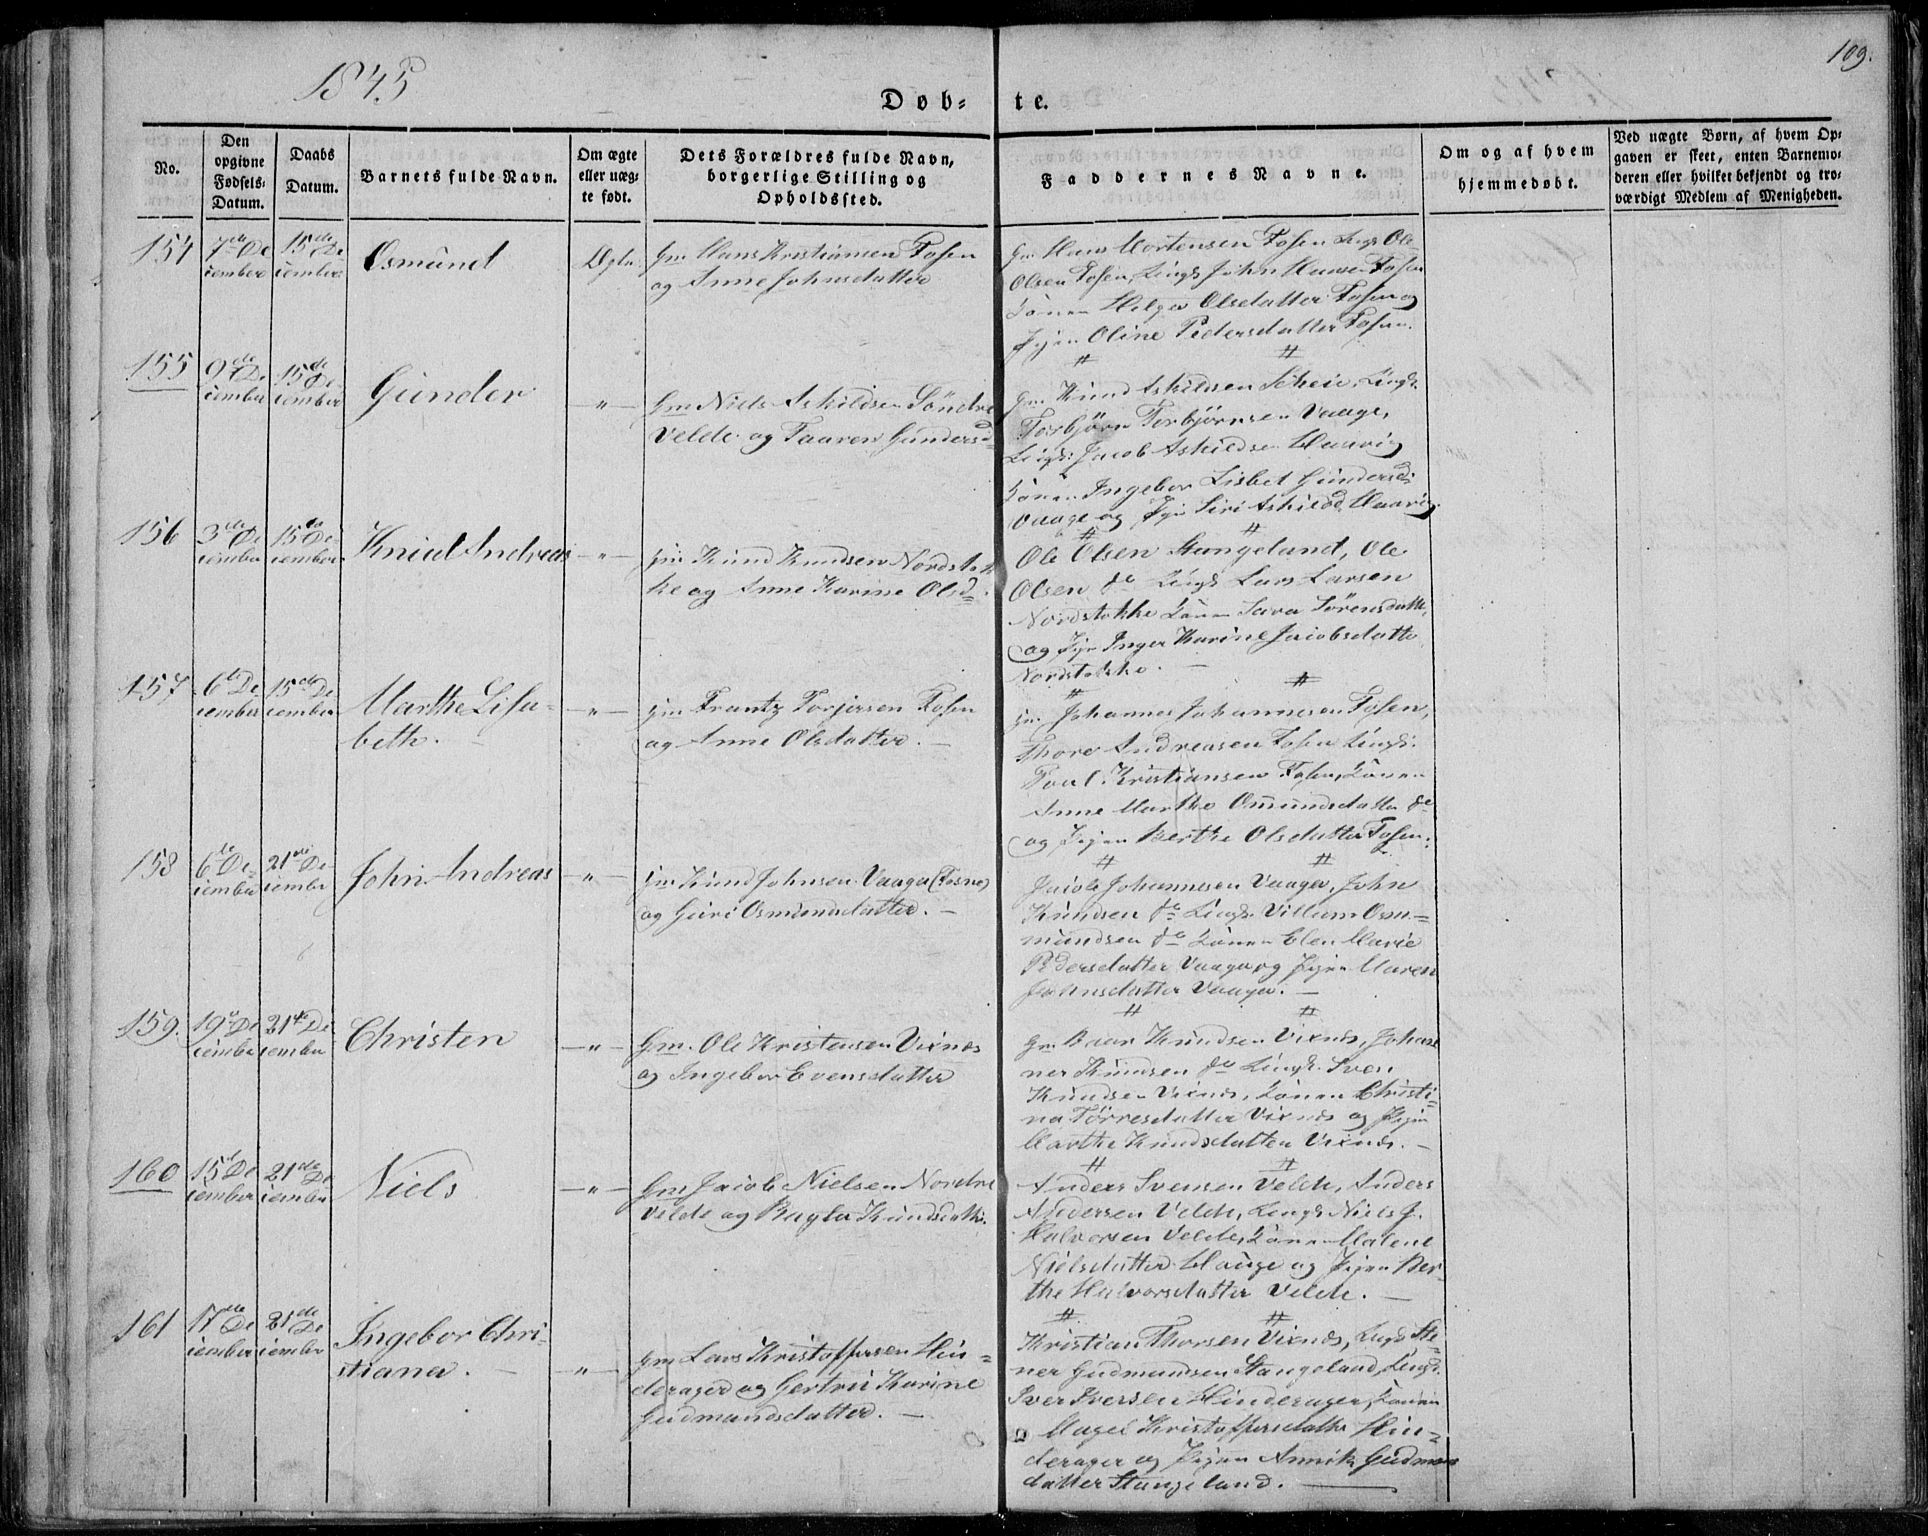 1845
109.
Døb-te.
No.
Den opgivne Fødsels-Datum.
Daabs Datum.
Barnets fulde Navn.
Om ægte eller uægte født.
Dets Forældres fulde Navn, borgerlige Stilling og Opholdssted.
Faddernes Navne.
Om og af hvem hjemmedøbt.
Ved uægte Børn, af hvem Opgaven er skeet, enten Barnemoderen eller hvilket bekjendt og troværdigt Medlem af Menigheden.
154
7de December
15de December
Osmund
Ægte
Gm Hans Kristiansen Fosen
og Anne Johnsdatter
Gm Hans Mortensen Fosen Ungk Ole
Olsen Fosen, Ungk John Hansen Fosen
Konen Helga Olsdatter Fosen og
Pigen Oline Pedersdatter Fosen.
155
9de December
15de December
Gunder
-"-
Gm Niels Askildsen Söndre
Velde og Taaren Gundersd
Gm Knud Askildsen Scheie, Ungk
Torbjörn Torbjørnsen Vaage,
Ungk: Jacob Askildsen
Konen Ingebor Lisbet Gundersd:
Vaage og Pige Siri Askildsd
156
3de December
15de December
Knud Andreas
-"-
gm Knud Knudsen Nordstok-
ke og Anne Karine Olsd.
Ole Olsen Stangeland, Ole
Olsen do Ungk Lars Larsen
Nordstokke Konen Sara Sörensdatter
og Pige Inger Karine Jacobsdatter
Nordstokke.
157
6te December
15de December
Marthe Lisa-
beth.
-"-
gm Frantz Torjersen Fosen
og Anne Olsdatter.
gm Johannes Johannesen Fosen,
Thore Andreasen Fosen Ungk:
Poul Kristiansen Fosen, Konen
Anne Marthe Omundsdatter do
og Pigen Berthe Olsdatter Fosen.
158
6te December
21de December
John Andreas
-"-
gm Knud Johnsen Vaage (Fosne)
og Guri Osmundsdatter.
Jacob Johannesen Vaage, John
Knudsen do Ungk Villum Osm-
mundsen do Konen Elen Marie
Pedersdatter Vaage og Pigen Maren
Johnsdatter Vaage.
159.
19de December
21de December
Christen
-"-
Gm. Ole Kristensen Vixnes
og Ingebor Evensdatter
Gm Baar Knudsen Vixnes, Johan-
nes Knudsen do Ungk. Sven
Knudsen Vixnes, Konen Christi-
na Törresdatter Vixnes og Pigen
Marthe Knudsdatter Vixnes.
160
15de December
21de December
Niels
-"-
Gm Jacob Nielsen Nordre
Velde og Knudsdatter.
Anders Svensen Velde, Anders
Andersen Velde, Ungk Niels J.
Halvorsen Velde, Konen Malene
Nielsdatter Hauge og Pigen Ber-
the Halvorsdatter Velde.
161
17de December
21de December
Ingebor Chri-
stiana.
-"-
Gm Lars Kristoffersen Hin-
derager og Gertrü Karine
Gudmundsdatter.
Kristian Thorsen Vixnes, Ungk Ste-
ner Gudmundsen Stangeland, Ungk.
Iver Iversen Hinderager, Konen
Magel Kristoffersdatter Hin-
derager og Pigen Annik Gudmuns
datter Stangeland.